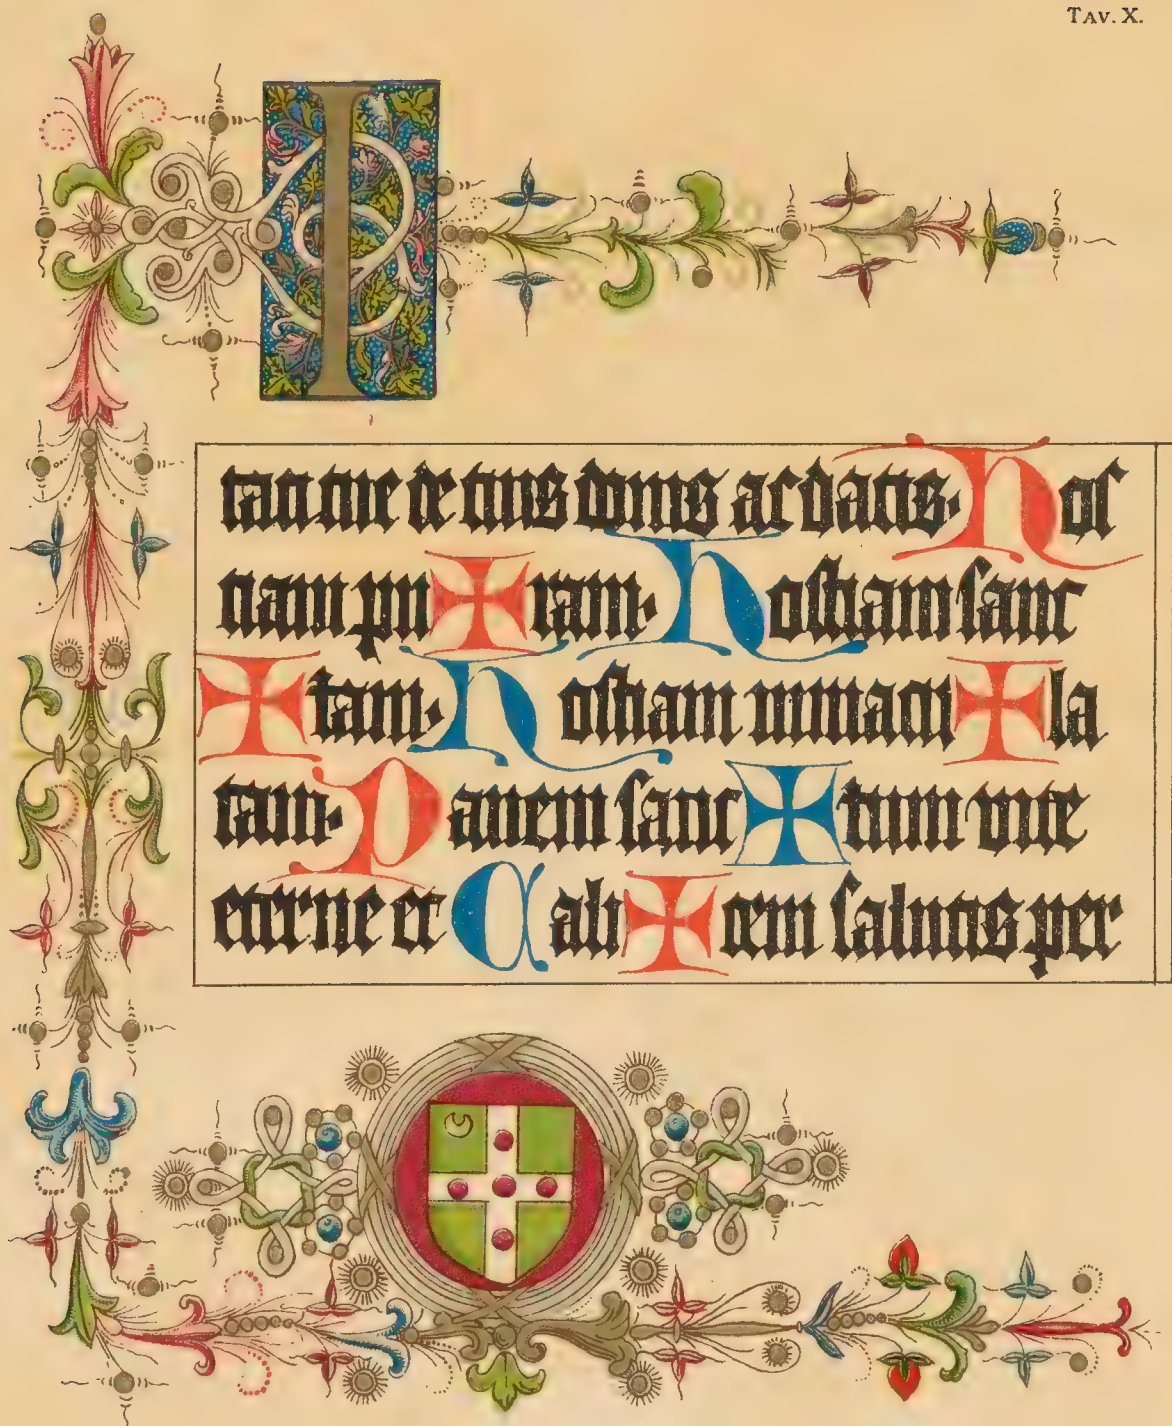 TAV. X.
I
tati tue de tuis donis ac datis. Hos
tiam pu ✠ ram. Hostiam sanc
✠ tam. Hostiam immacu ✠ la
tam. Panem sanc ✠ tum vite
eterne et Cali ✠ cem salutis per